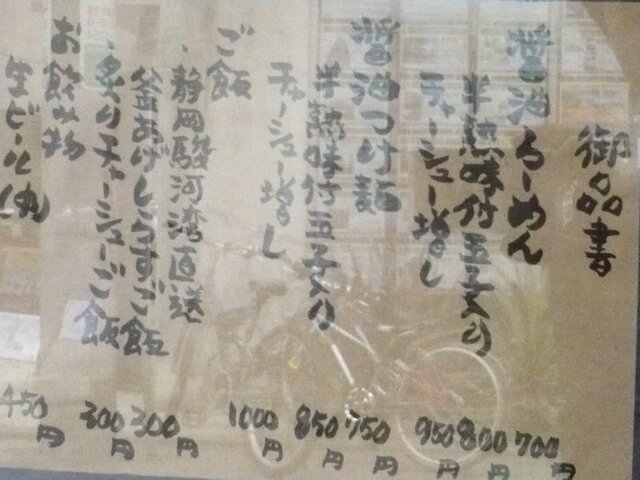 御品書
醤油らーめん 700円
半熟味付玉子入り 800円
チャーシュー増し 950円
醤油つけ麺 750円
半熟味付玉子入り 850円
チャーシュー増し 1000円
ご飯
・静岡駿河湾直送
釜あげしらすご飯 300円
・炙りチャーシューご飯 300円
お飲み物
生ビール(中) 450円